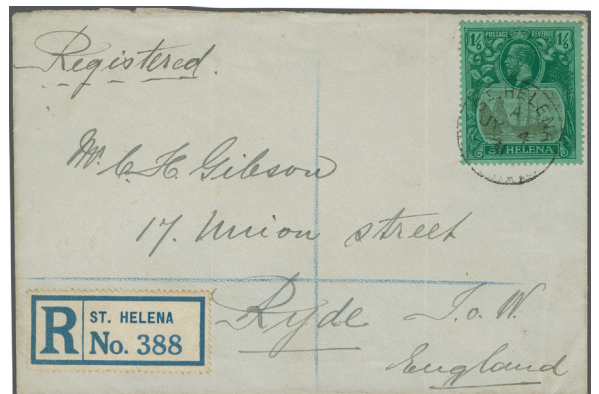 Registered.
1/6 POSTAGE REVENUE 1/6
ST HELENA
ST. HELENA
Mr. C. H. Gibson
17. Union street
Ryde I.o.W.
England
R ST. HELENA
No. 388